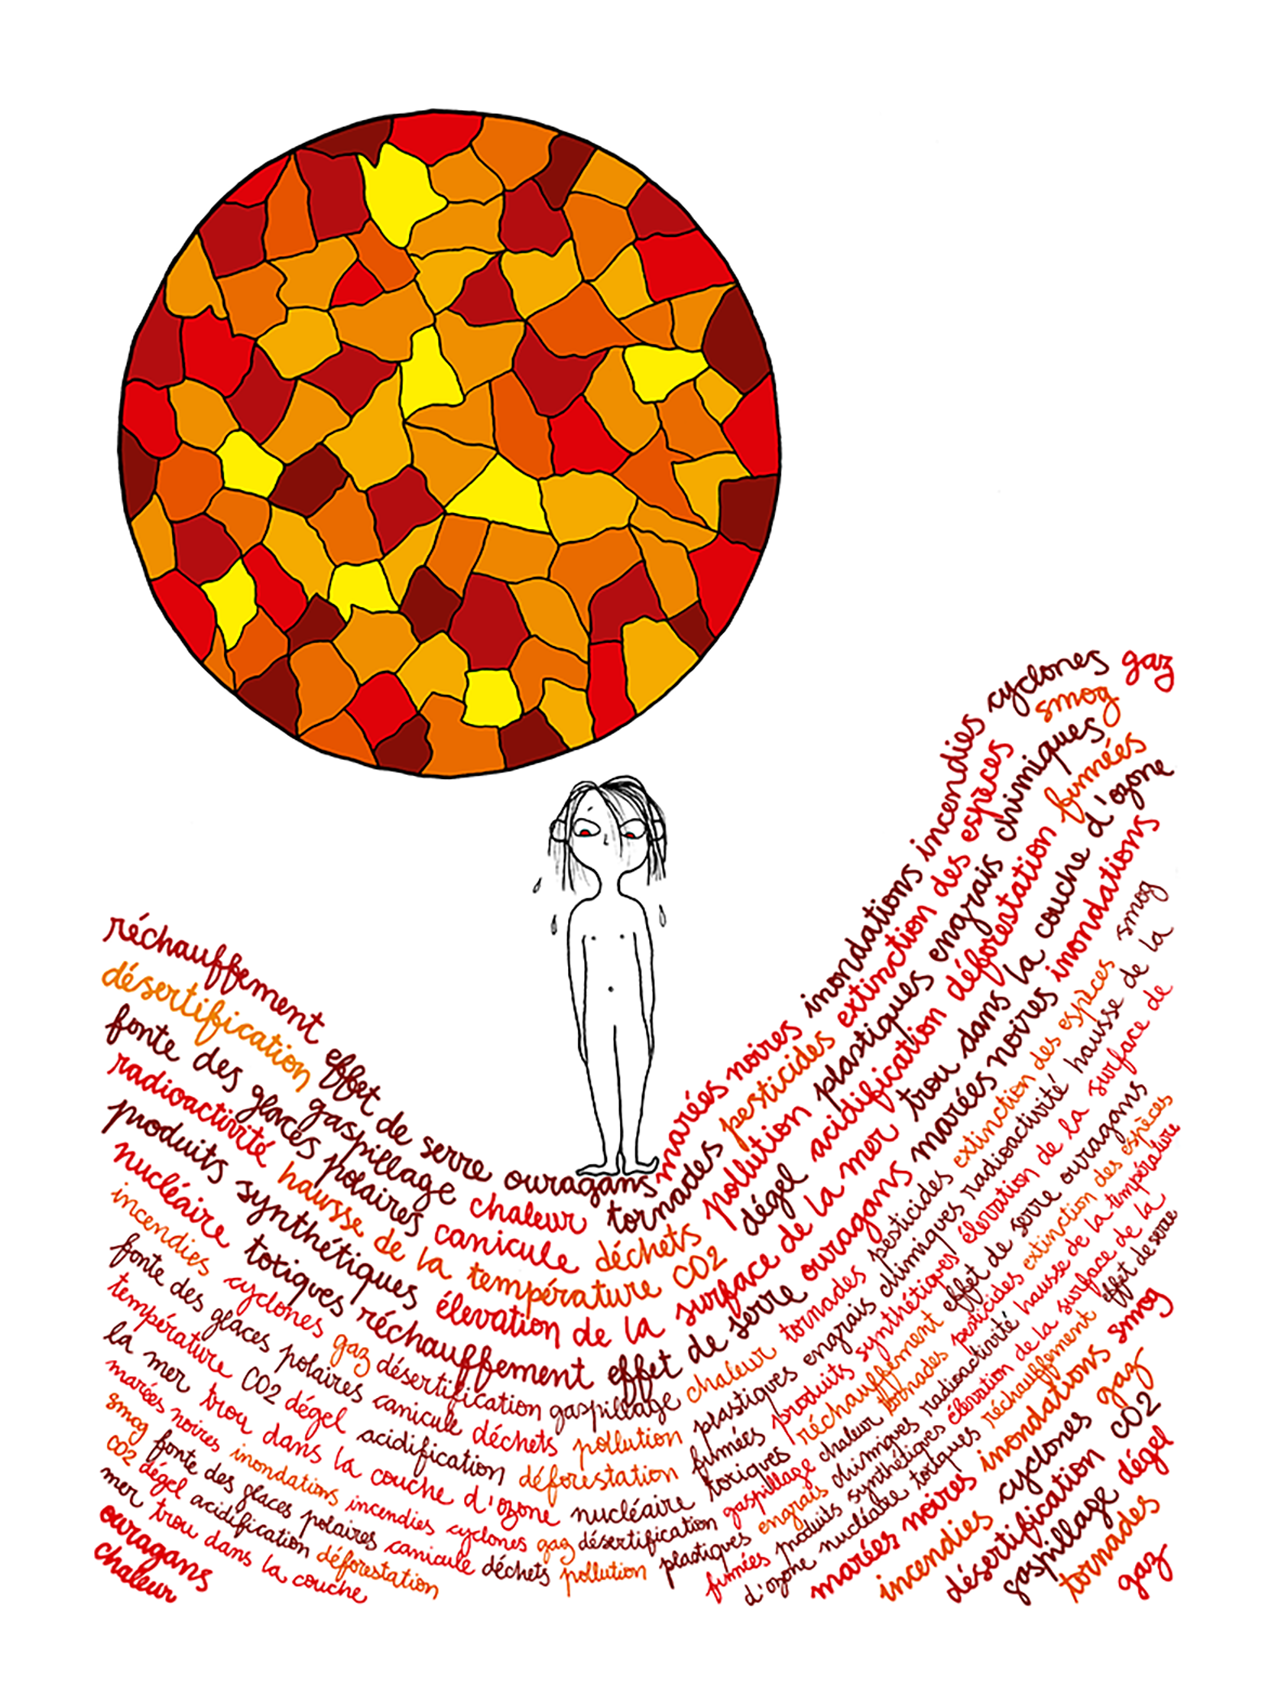 réchauffement effet de serre ouragans marées noires inondations incendies cyclones gaz
désertification gaspillage chaleur tornades pesticides extinction des espèces smog
fonte des glaces polaires canicule déchets pollution plastiques engrais chimiques
radioactivité hausse de la température CO2 dégel acidification déforestation fumées
produits synthétiques élevation de la surface de la mer trou dans la couche d'ozone
nucléaire totiques réchauffement effet de serre ouragans marées noires inondations
incendies cyclones gaz désertification gaspillage chaleur tornades pesticides extinction des espèces smog
fonte des glaces polaires canicule déchets pollution plastiques engrais chimiques radioactivité hausse de la
température CO2 dégel acidification déforestation fumées produits synthétiques élevation de la surface de
la mer trou dans la couche d'ozone nucléaire toriques réchauffement effet de serre ouragans
marées noires inondations incendies cyclones gaz désertification gaspillage chaleur tornades pesticides extinction des espèces
smog fonte des glaces polaires canicule déchets pollution plastiques engrais chimiques radioactivité hausse de la température
CO2 dégel acidification déforestation fumées produits synthétiques élevation de la surface de la
mer trou dans la couche d'ozone nucléaire toriques réchauffement effet de serre
ouragans marées noires inondations smog
chaleur incendies cyclones gaz
désertification CO2
gaspillage dégel
tornades
gaz